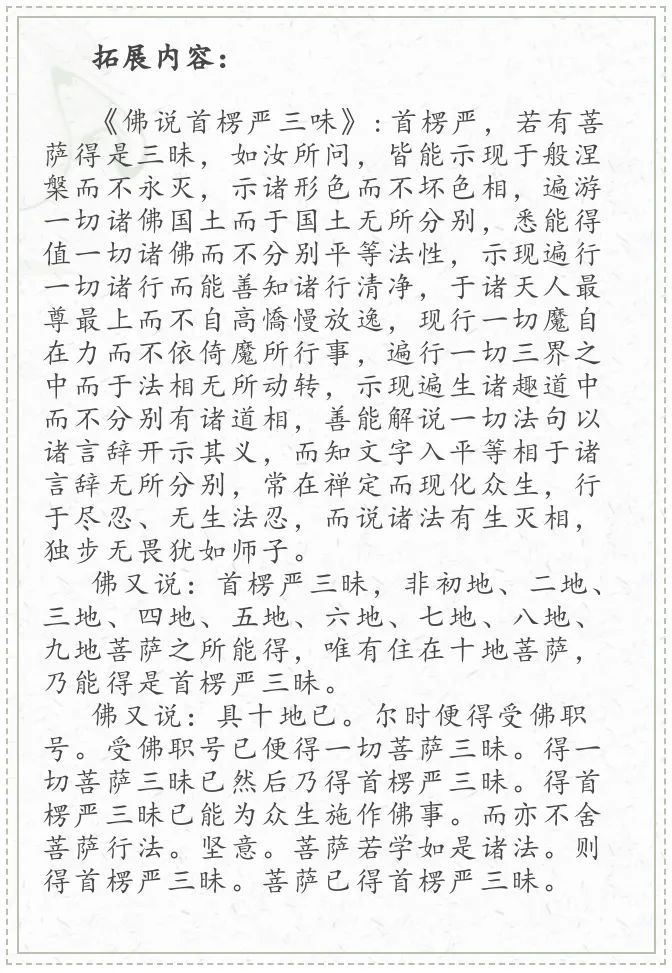 拓展内容：
《佛说首楞严三味》：首楞严，若有菩
萨得是三昧，如汝所问，皆能示现于般涅
槃而不永灭，示诸形色而不坏色相，遍游
一切诸佛国土而于国土无所分别，悉能得
值一切诸佛而不分别平等法性，示现遍行
一切诸行而能善知诸行清净，于诸天人最
尊最上而不自高憍慢放逸，现行一切魔自
在力而不依倚魔所行事，遍行一切三界之
中而于法相无所动转，示现遍生诸趣道中
而不分别有诸道相，善能解说一切法句以
诸言辞开示其义，而知文字入平等相于诸
言辞无所分别，常在禅定而现化众生，行
于尽忍、无生法忍，而说诸法有生灭相，
独步无畏犹如师子。
佛又说：首楞严三昧，非初地、二地、
三地、四地、五地、六地、七地、八地、
九地菩萨之所能得，唯有住在十地菩萨，
乃能得是首楞严三昧。
佛又说：具十地已。尔时便得受佛职
号。受佛职号已便得一切菩萨三昧。得一
切菩萨三昧已然后乃得首楞严三昧。得首
楞严三昧已能为众生施作佛事。而亦不舍
菩萨行法。坚意。菩萨若学如是诸法。则
得首楞严三昧。菩萨已得首楞严三昧。